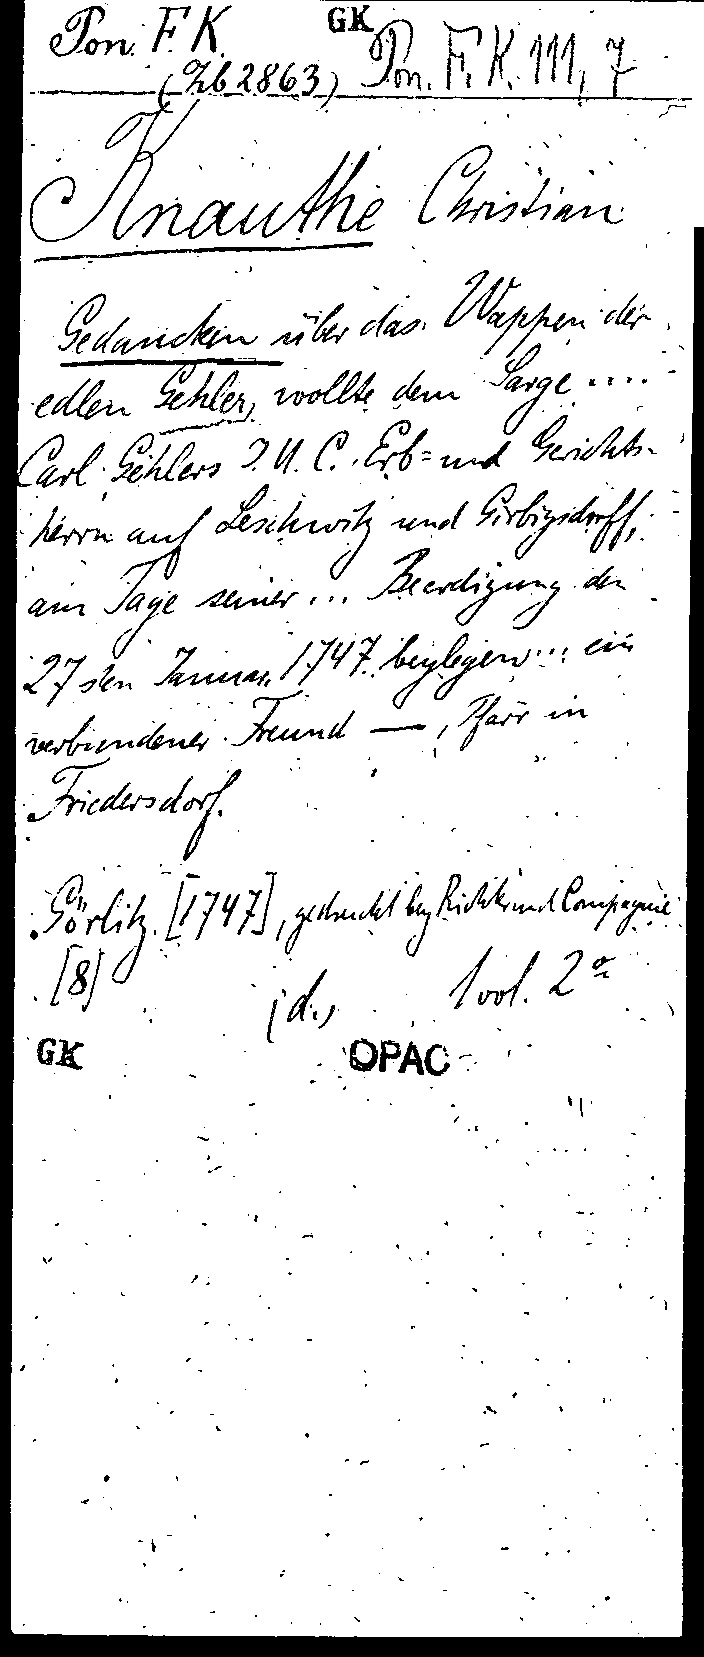 Pon. F. K. GK
(Zb 2863) Pon. F. K. 111, 7
Knauthe Christian
Gedancken über das Wappen der
edlen Gehler, wollte dem Sarge ....
Carl Gehlers J. U. C. Erb= und Gerichts-
herrn auf Leschwitz und Girbigsdorff,
am Tage seiner ... Beerdigung den
27sten Januar. 1747. beylegen ... ein
verbundener Freund —, Pfarr in
Friedersdorf.
Görlitz. [1747], gedruckt bey Richter und Compagnie
[8] 1 vol. 2°
GK OPAC